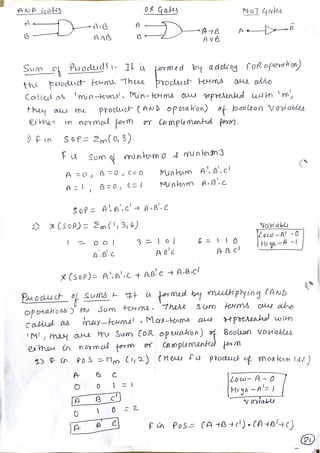 AND Gates OR Gates NOT Gate
A A·B A A+B A Ā
B A∧B B A∨B
Sum of Products :- It is formed by adding (OR operation)
the product terms. These product terms are also
Called as 'min-terms'. Min-terms are represented with 'm',
they are the product (AND operation) of boolean variables
either in normal form or complemented form.
1) F in SOP = Σm(0, 3)
F is Sum of minterm 0 & minterm 3
A = 0, B = 0, C = 0 Minterm A'.B'.C'
A = 1, B = 0, C = 1 Minterm A.B'.C
SOP = A'.B'.C' + A.B'.C
2) X (SOP) = Σm(1, 3, 6)
Variable
Low - A' - 0
High - A - 1
1 = 0 0 1 3 = 1 0 1 6 = 1 1 0
A'.B'.C A B'C A B C'
X (SOP) = A'.B'.C + AB'C + A.B.C'
Product of Sums :- It is formed by multiplying (AND
operations) the Sum terms. These Sum terms are also
called as 'max-terms'. Max-terms are represented with
'M', they are the Sum (OR operation) of Boolean variables
either in normal form or complemented form
1) F in POS = πm (1, 2) (Here F is product of maxterm 1&2)
A B C
0 0 1 = 1
A B C'
0 1 0 = 2
A B' C
Low - A - 0
High - A' = 1
Variable
F in POS = (A+B+C').(A+B'+C)
21